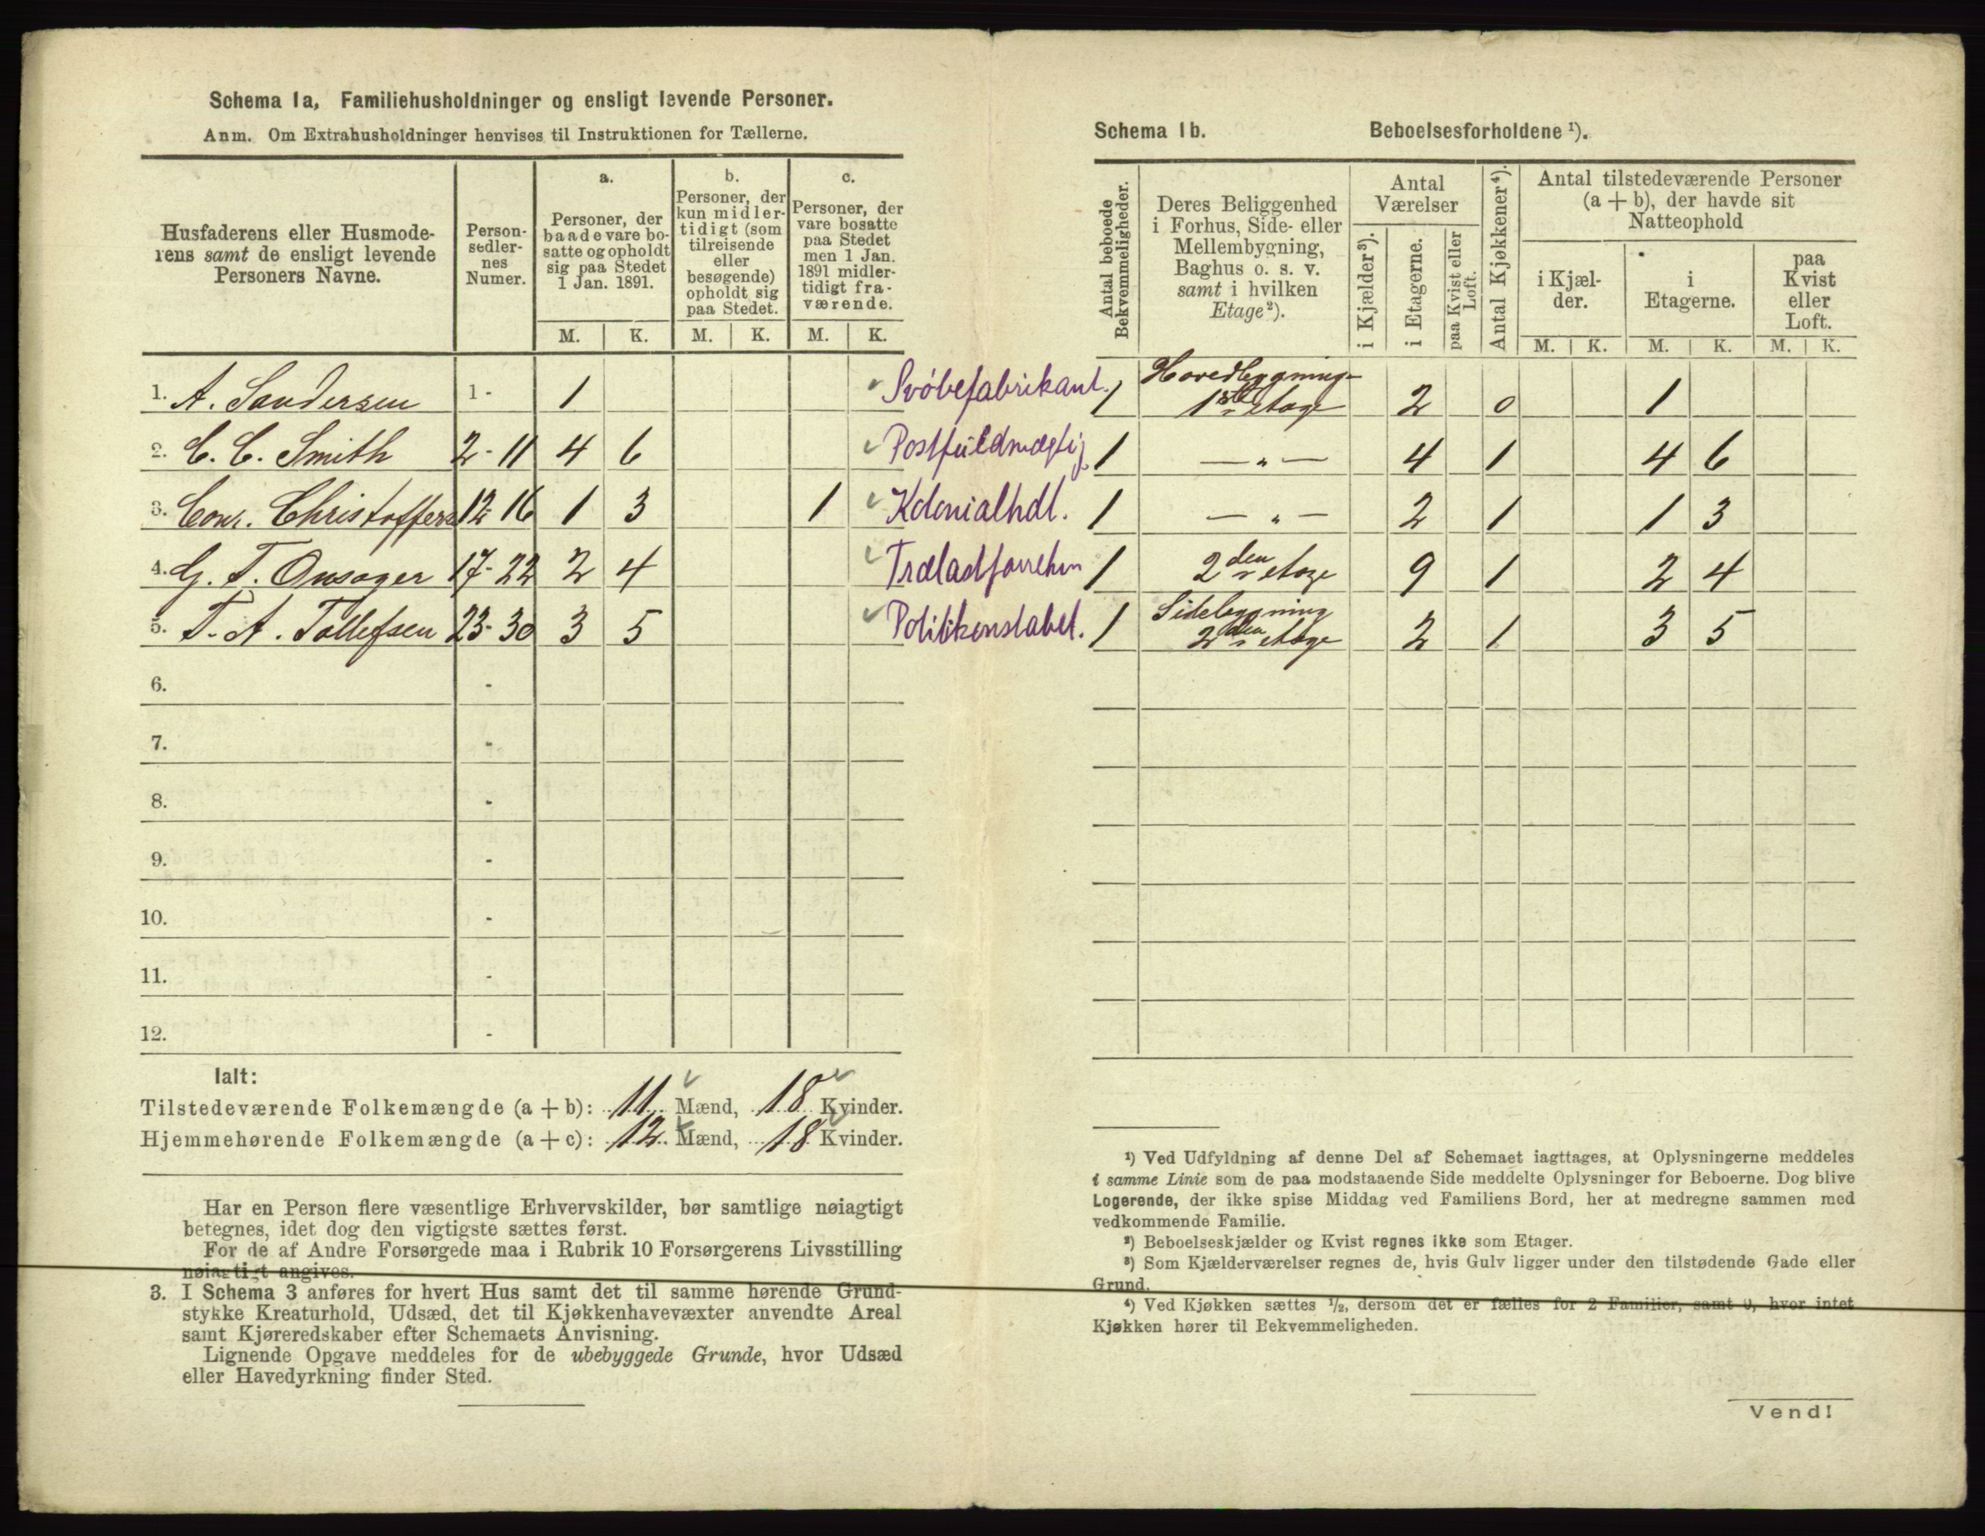 Schema 1a, Familiehusholdninger og ensligt levende Personer.
Anm. Om Extrahusholdninger henvises til Instruktionen for Tællerne.
Husfaderens eller Husmode-
rens samt de ensligt levende
Personers Navne.
Person-
sedler-
nes
Numer.
a.
Personer, der
baade vare bo-
satte og opholdt
sig paa Stedet
1 Jan. 1891.
b.
Personer, der
kun midler-
tidigt (som
tilreisende
eller
besøgende)
opholdt sig
paa Stedet.
c.
Personer, der
vare bosatte
paa Stedet
men 1 Jan.
1891 midler-
tidigt fra-
værende.
M. K. M. K. M. K.
1. A. Sandersen 1 - 1
2. C. C. Smith 2-11 4 6
3. Conr. Christoffers 12-16 1 3 1
4. G. T. Onsager 17-22 2 4
5. T. A. Tollefsen 23-30 3 5
6. -
7. -
8. -
9. -
10. -
11. -
12. -
Ialt:
Tilstedeværende Folkemængde (a + b): 11 Mænd, 18 Kvinder.
Hjemmehørende Folkemængde (a + c): 12 Mænd, 18 Kvinder.
Har en Person flere væsentlige Erhvervskilder, bør samtlige nøiagtigt
betegnes, idet dog den vigtigste sættes først.
For de af Andre Forsørgede maa i Rubrik 10 Forsørgerens Livsstilling
nøiagtigt angives.
3. I Schema 3 anføres for hvert Hus samt det til samme hørende Grund-
stykke Kreaturhold, Udsæd, det til Kjøkkenhavevæxter anvendte Areal
samt Kjøreredskaber efter Schemaets Anvisning.
Lignende Opgave meddeles for de ubebyggede Grunde, hvor Udsæd
eller Havedyrkning finder Sted.
Schema 1b. Beboelsesforholdene ¹).
Antal beboede
Bekvemmeligheder.
Deres Beliggenhed
i Forhus, Side- eller
Mellembygning,
Baghus o. s. v.
samt i hvilken
Etage²).
Antal
Værelser
i Kjælder³).
i Etagerne.
paa Kvist eller
Loft.
Antal Kjøkkener⁴).
Antal tilstedeværende Personer
(a + b), der havde sit
Natteophold
i Kjæl-
der.
i
Etagerne.
paa
Kvist
eller
Loft.
M. K. M. K. M. K.
Svøbefabrikant. 1 Hovedbygning 1ste etage 2 0 1
Postfuldmægtig 1 — „ — 4 1 4 6
Kolonialhdl. 1 — „ — 2 1 1 3
1 2den etage 9 1 2 4
Politikonstabel. 1 Sidebygning 2den etage 2 1 3 5
¹) Ved Udfyldning af denne Del af Schemaet iagttages, at Oplysningerne meddeles
i samme Linie som de paa modstaaende Side meddelte Oplysninger for Beboerne. Dog blive
Logerende, der ikke spise Middag ved Familiens Bord, her at medregne sammen med
vedkommende Familie.
²) Beboelseskjælder og Kvist regnes ikke som Etager.
³) Som Kjælderværelser regnes de, hvis Gulv ligger under den tilstødende Gade eller
Grund.
⁴) Ved Kjøkken sættes ½, dersom det er fælles for 2 Familier, samt 0, hvor intet
Kjøkken hører til Bekvemmeligheden.
Vend!